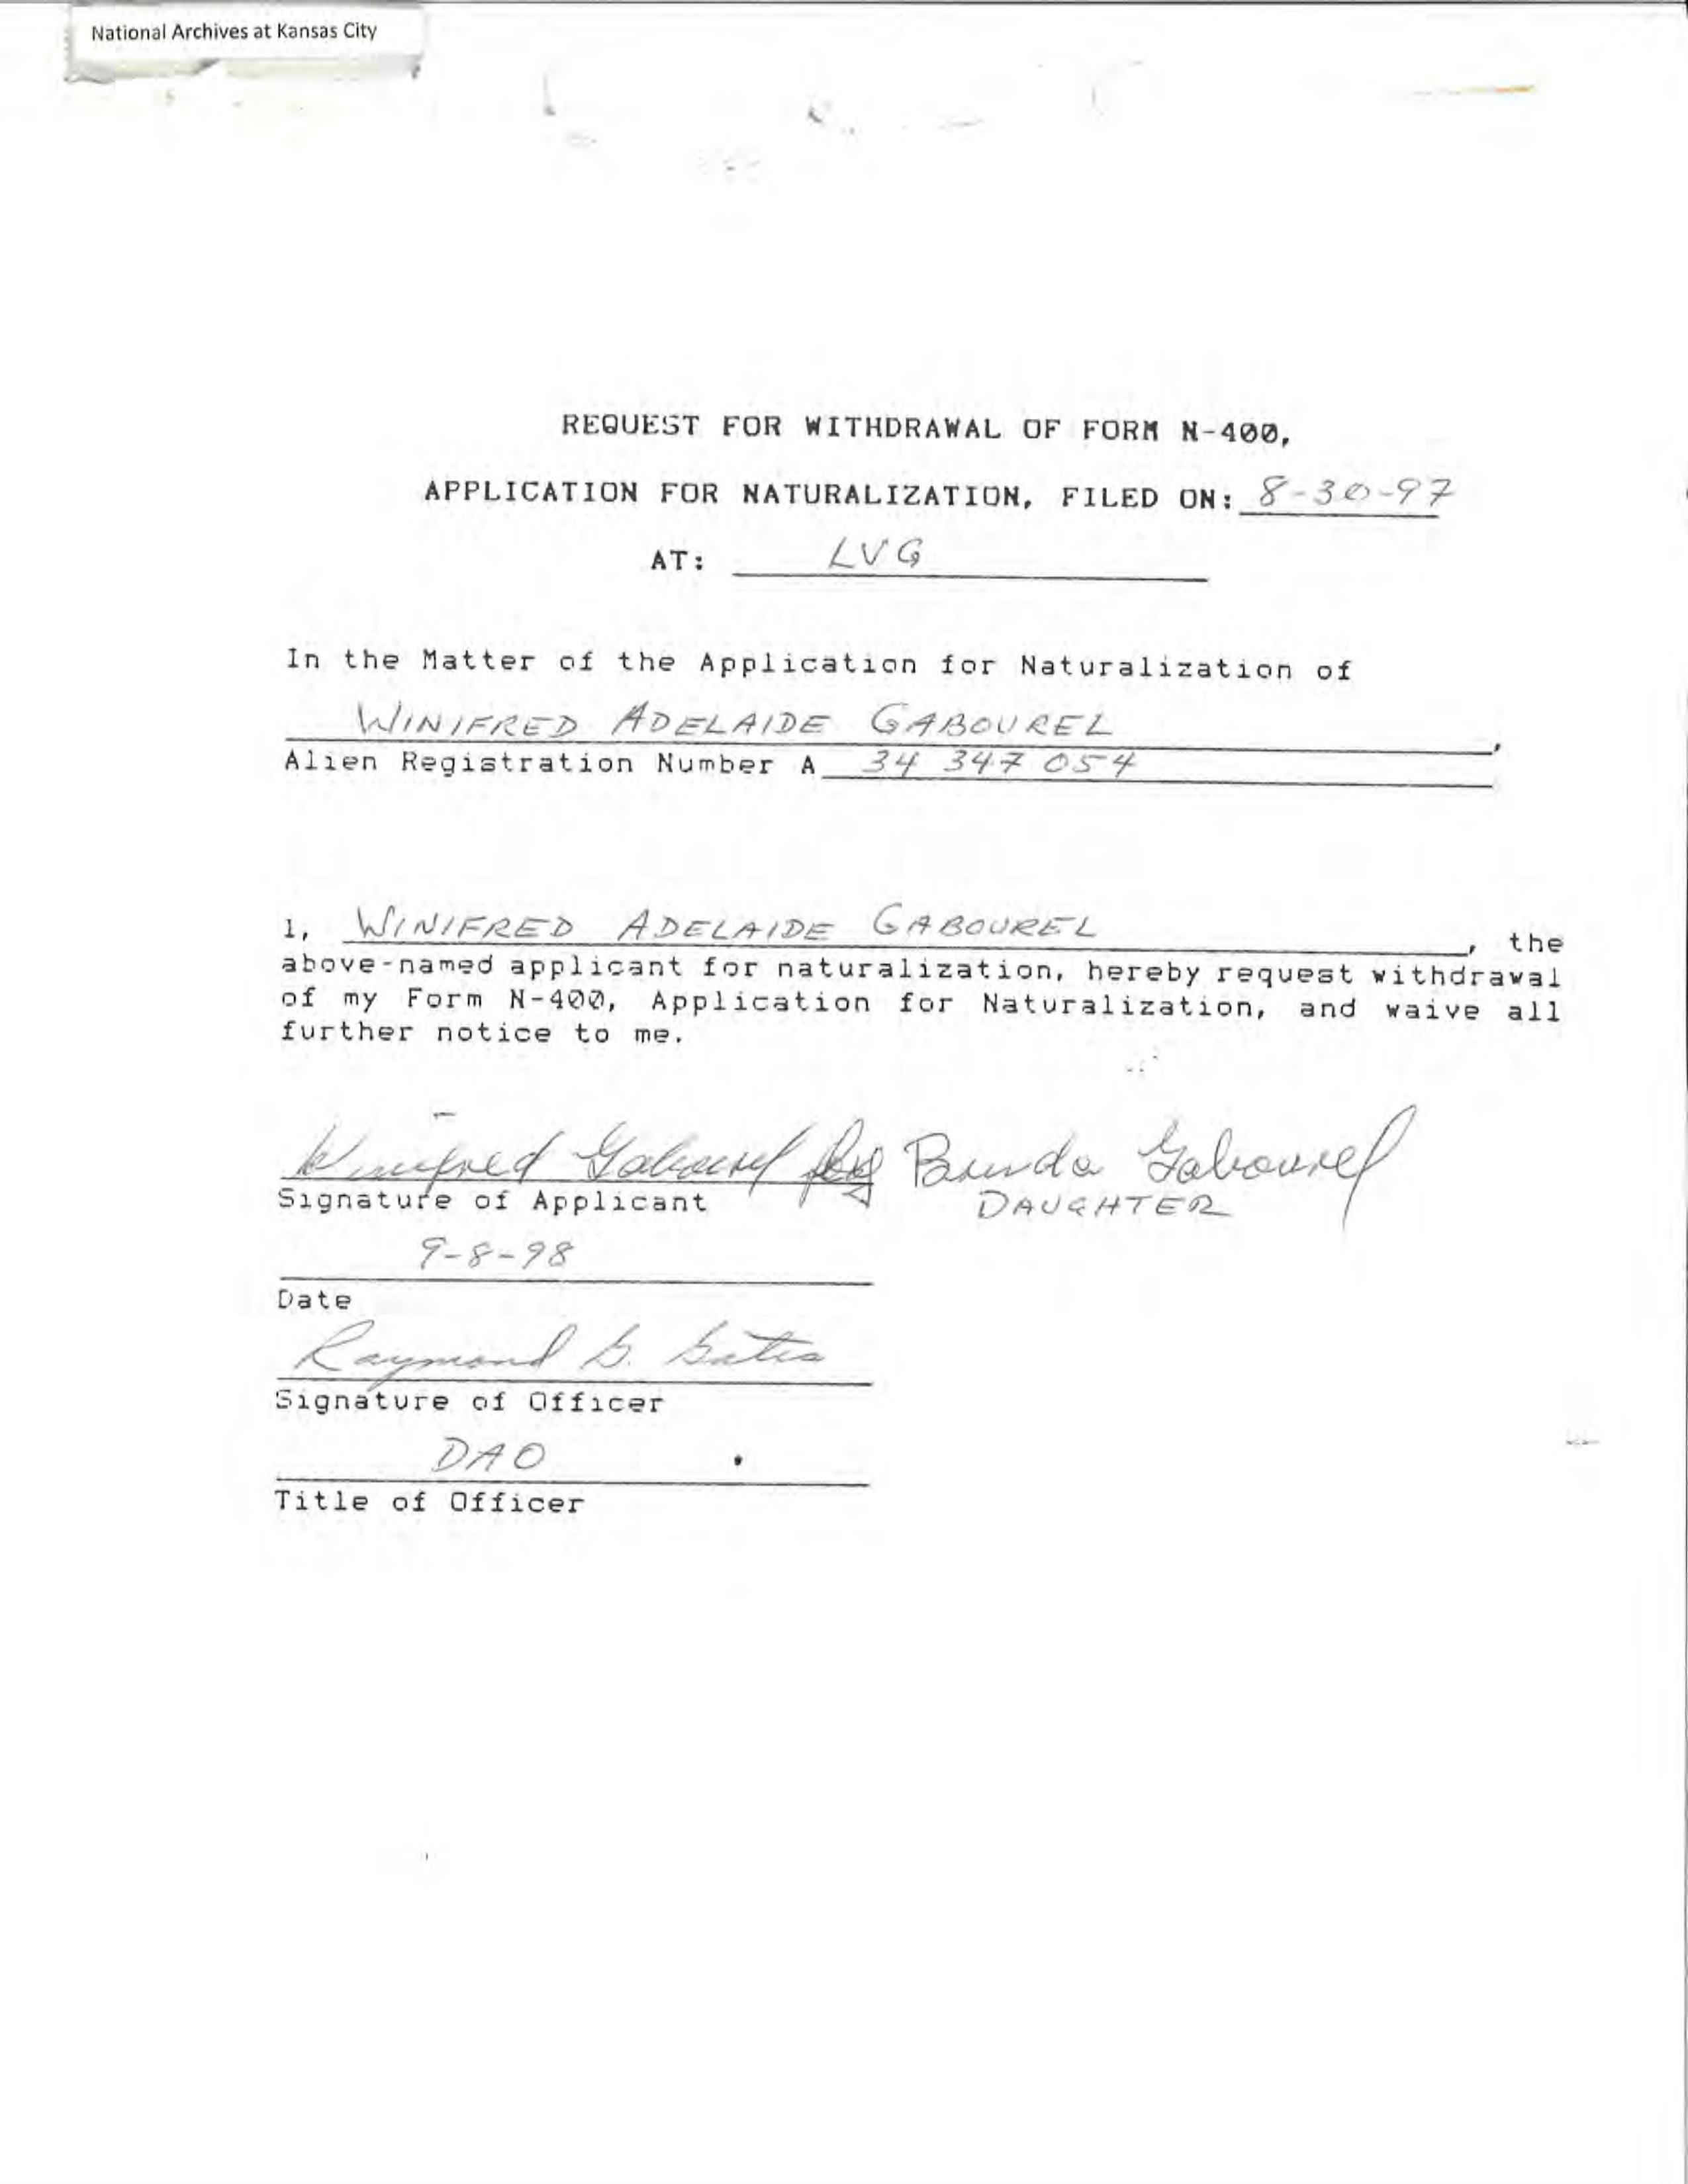 National Archives at Kansas City
REQUEST FOR WITHDRAWAL OF FORM N-400,
APPLICATION FOR NATURALIZATION, FILED ON: 8-30-97
AT: LVG
In the Matter of the Application for Naturalization of
WINIFRED ADELAIDE GABOUREL,
Alien Registration Number A 34 347 054
I, WINIFRED ADELAIDE GABOUREL, the
above-named applicant for naturalization, hereby request withdrawal
of my Form N-400, Application for Naturalization, and waive all
further notice to me.
Winifred Gabourel by Brenda Gabourel
Signature of Applicant DAUGHTER
9-8-98
Date
Raymond G.
Signature of Officer
DAO
Title of Officer